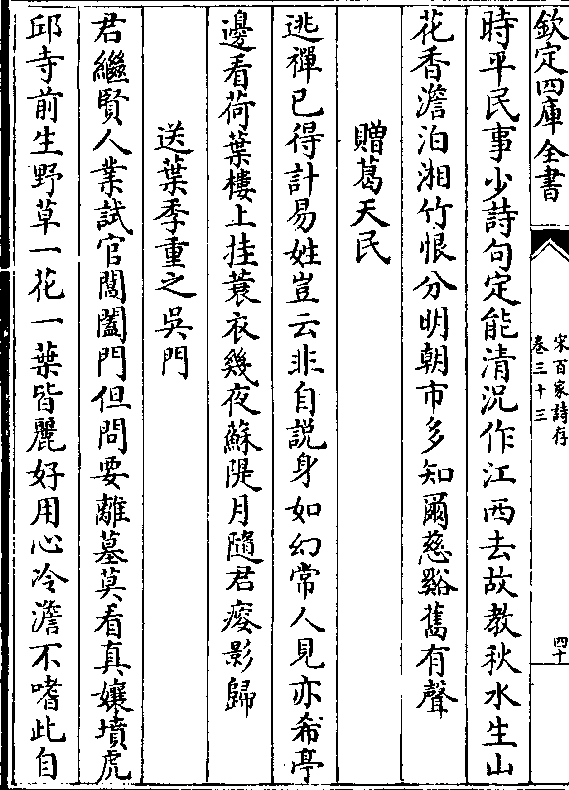 欽定四庫全書
宋百家詩存
卷三十三
四十
時平民事少詩句定能清況作江西去故教秋水生山
花香澹泊湘竹恨分明朝市多知爾慈谿舊有聲
贈葛天民
逃禪已得計易姓豈云非自説身如幻常人見亦希亭
邊看荷葉樓上挂蓑衣幾夜蘇隄月隨君瘦影歸
送葉季重之吳門
君繼賢人業試官閶闔門但問要離墓莫看真孃墳虎
邱寺前生野草一花一葉皆麗好用心冷澹不嗜此自